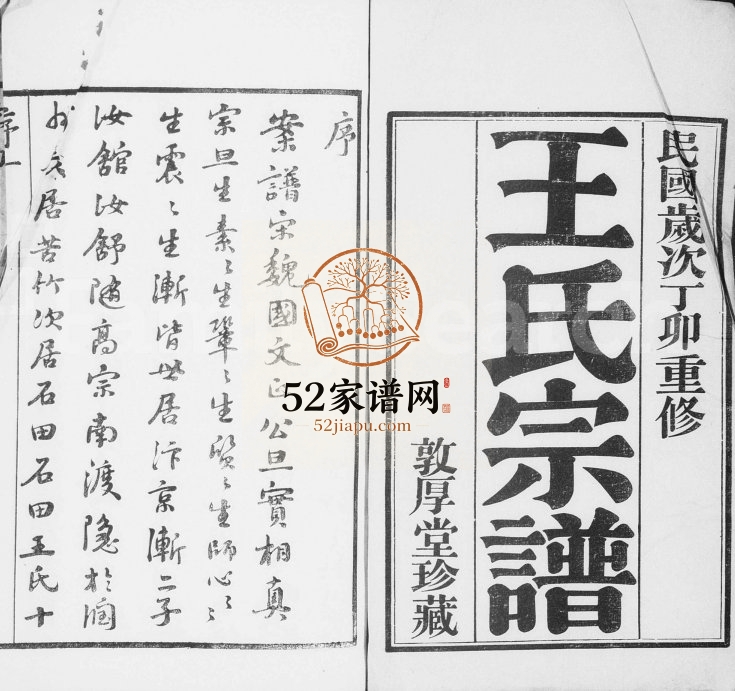 民國歲次丁卯重修
王氏宗譜
敦厚堂珍藏
序
案譜宋魏國文正公旦實相真
宗旦生素〻生鞏〻生質〻生師心〻
生震〻生漸皆世居汴京漸二子
汝舘汝舒隨高宗南渡隐於
居苦竹次居石田石田王氏十
52家谱网
52jiapu.com